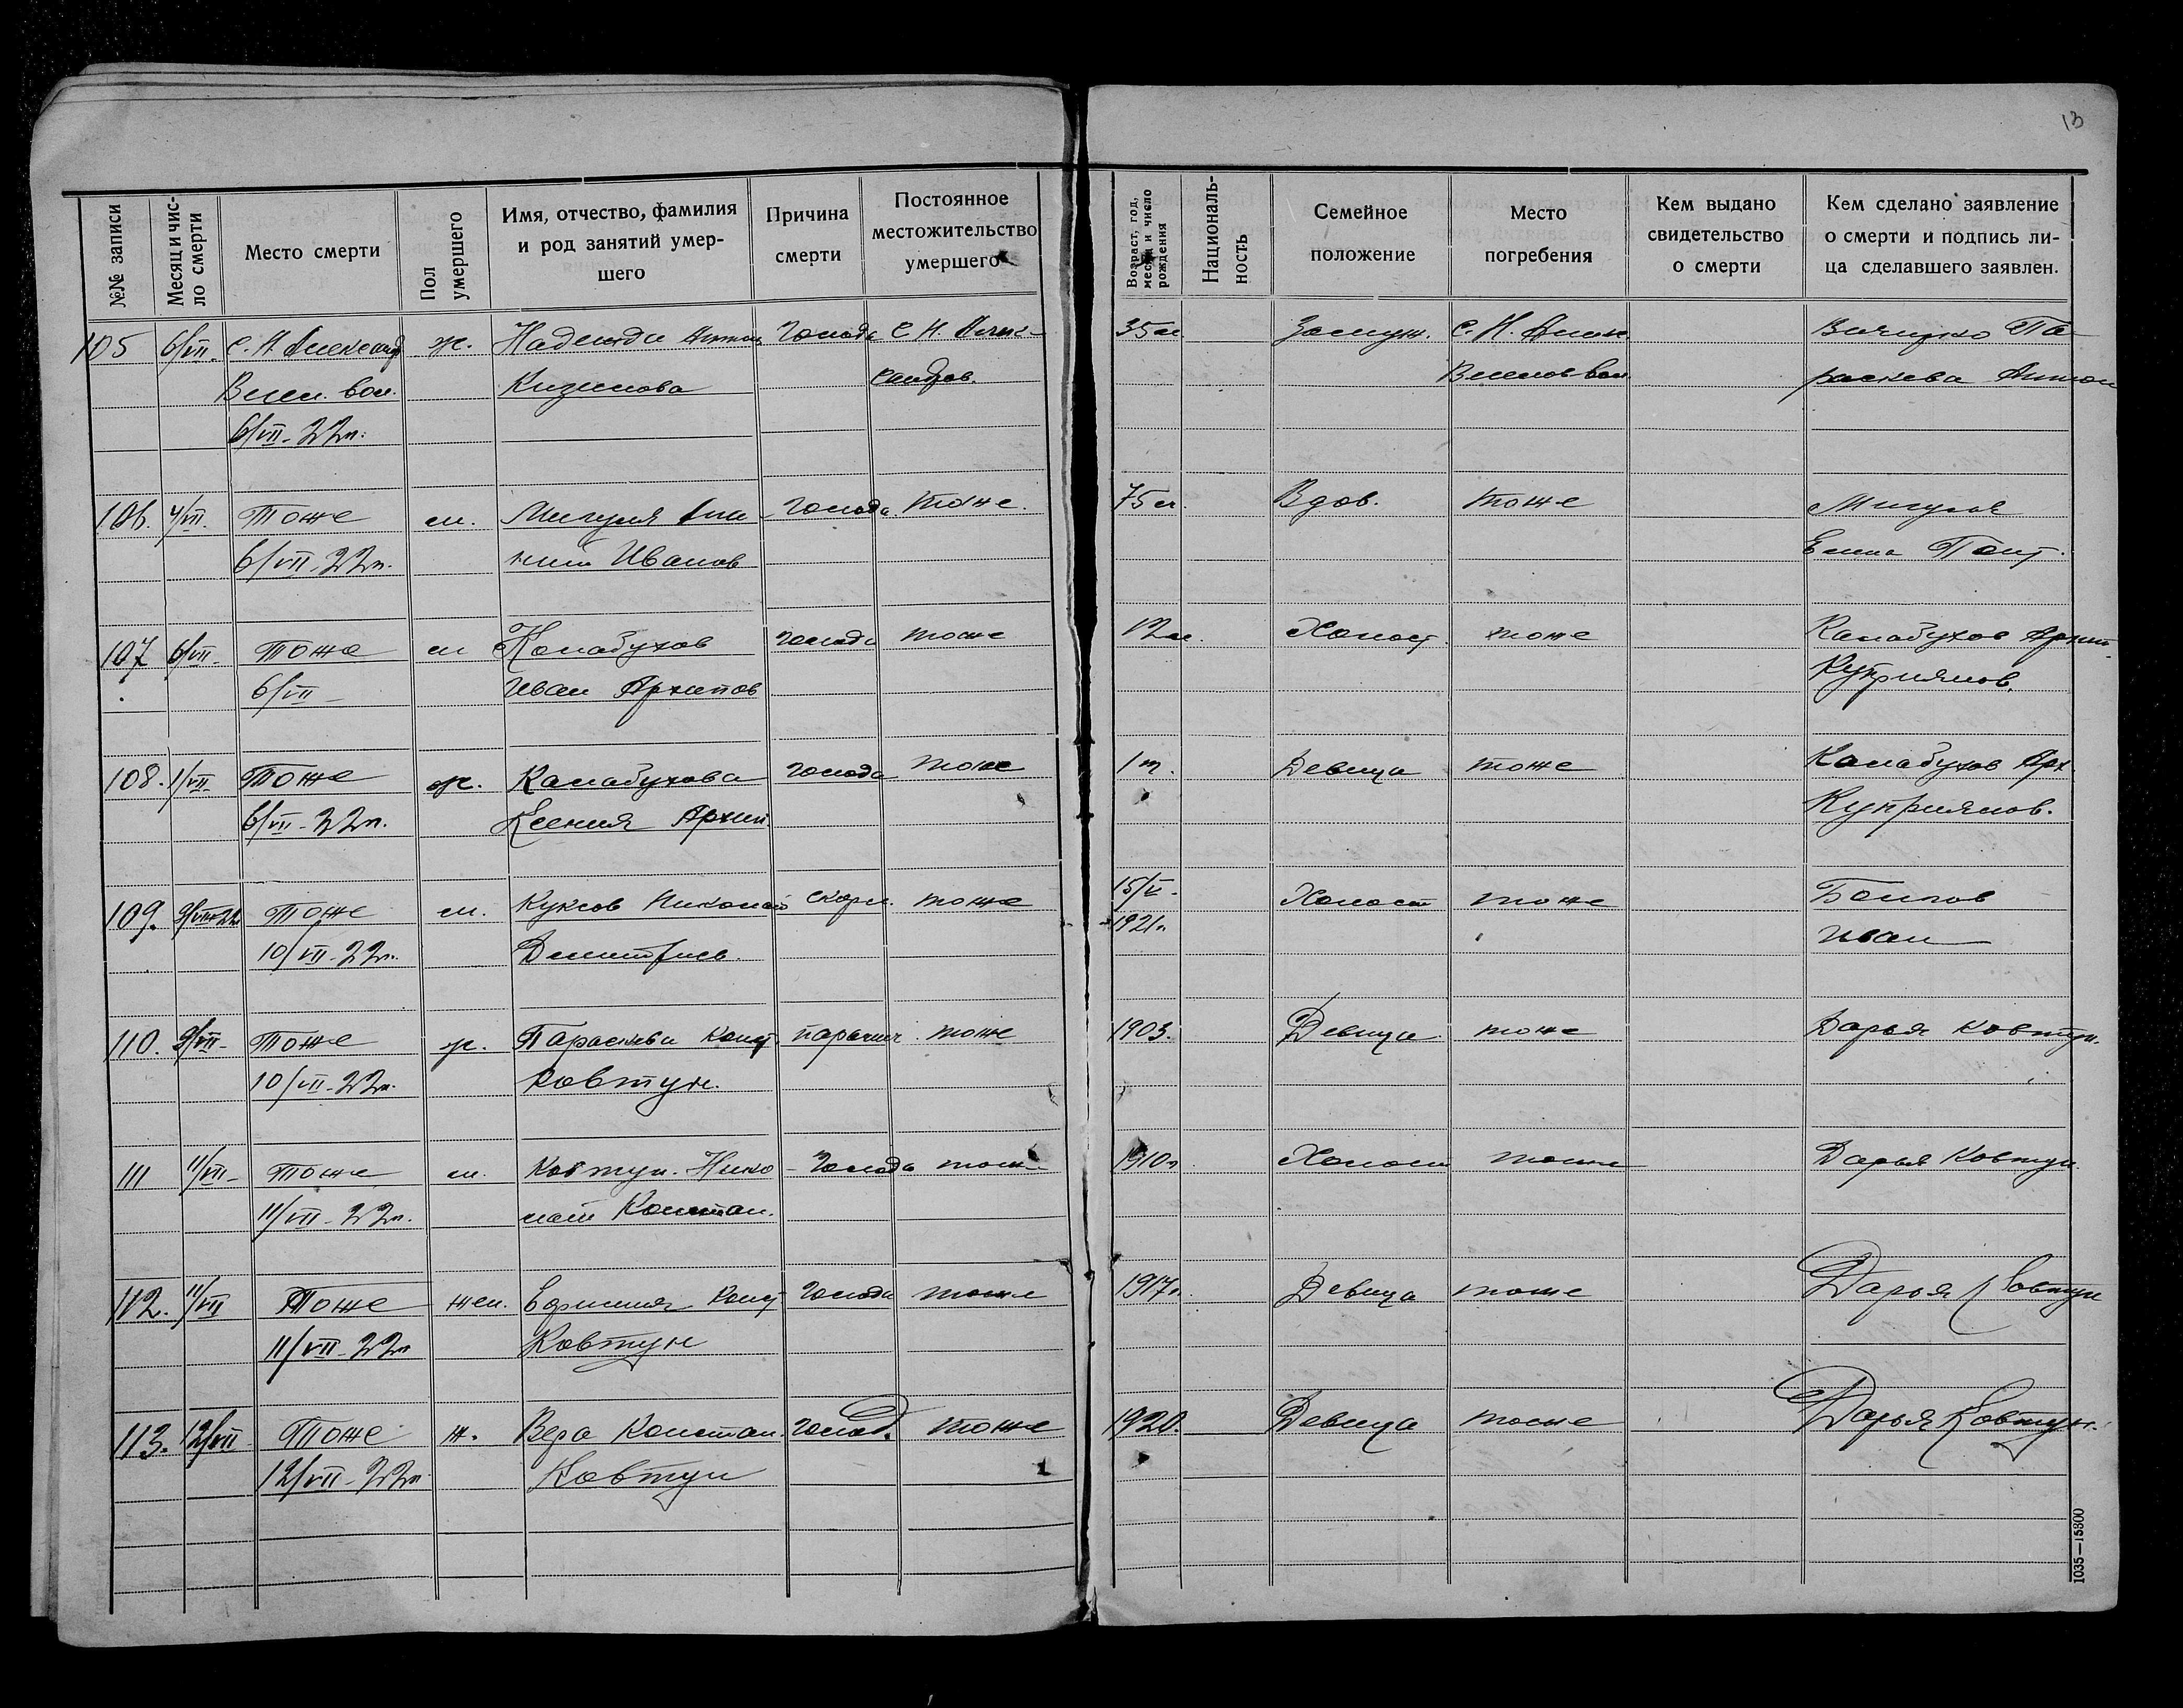 13
№№ записи
Месяц и чис-
ло смерти
Место смерти
Пол
умершего
Имя, отчество, фамилия
и род занятий умер-
шего
Причина
смерти
Постоянное
местожительство
умершего
Возраст, год,
месяц и число
рождения
Националь-
ность
Семейное
положение
Место
погребения
Кем выдано
свидетельство
о смерти
Кем сделано заявление
о смерти и подпись ли-
ца сделавшего заявлен.
105 6/VII. С. Н Александ ж. Надежда Антон голода С. Н. Алекс- 35 л. Замуж. С. Н. Алек. Па-
Весел. вол. Кизилова андров. Веселов вол. раскева Антон
6/VII-22г.
106. 4/VII. Тоже м. Мигуля Ана- голода тоже. 75 л. Вдов. тоже Мигуля
6/VII-22г. ний Иванов Елена Пант.
107 6/VII- Тоже м Калабухов голода тоже 12 л. Холост. тоже Калабухов Архип.
6/VII- Иван Архипов Куприянов.
108. 1/VII- Тоже ж. Калабухова голода тоже 1 г. Девица тоже Калабухов Арх.
6/VII-22г. Ксения Архип. Куприянов.
109. 9/VII-22 Тоже м. Куксов Николай скарл. тоже 15/V- Холост тоже
10/VII-22г. Дмитриев. 1921г. Иван
110. 9/VII- Тоже ж. Параскева Конст. тоже 1903. Девица тоже Дарья Ковтун.
10/VII-22г. Ковтун.
111 11/VII- Тоже м. Ковтун. Нико- голода тоже 1910г Холост тоже Дарья Ковтун
11/VII-22г. лай Констан.
112. 11/VII Тоже жен. Конст голода тоже 1917г. Девица тоже Дарья Ковтун
11/VII-22г Ковтун
113. 12/VII Тоже ж. Вера Констан. голод. тоже 1920. Девица тоже Дарья Ковтун.
12/VII-22г Ковтун
1035—15300